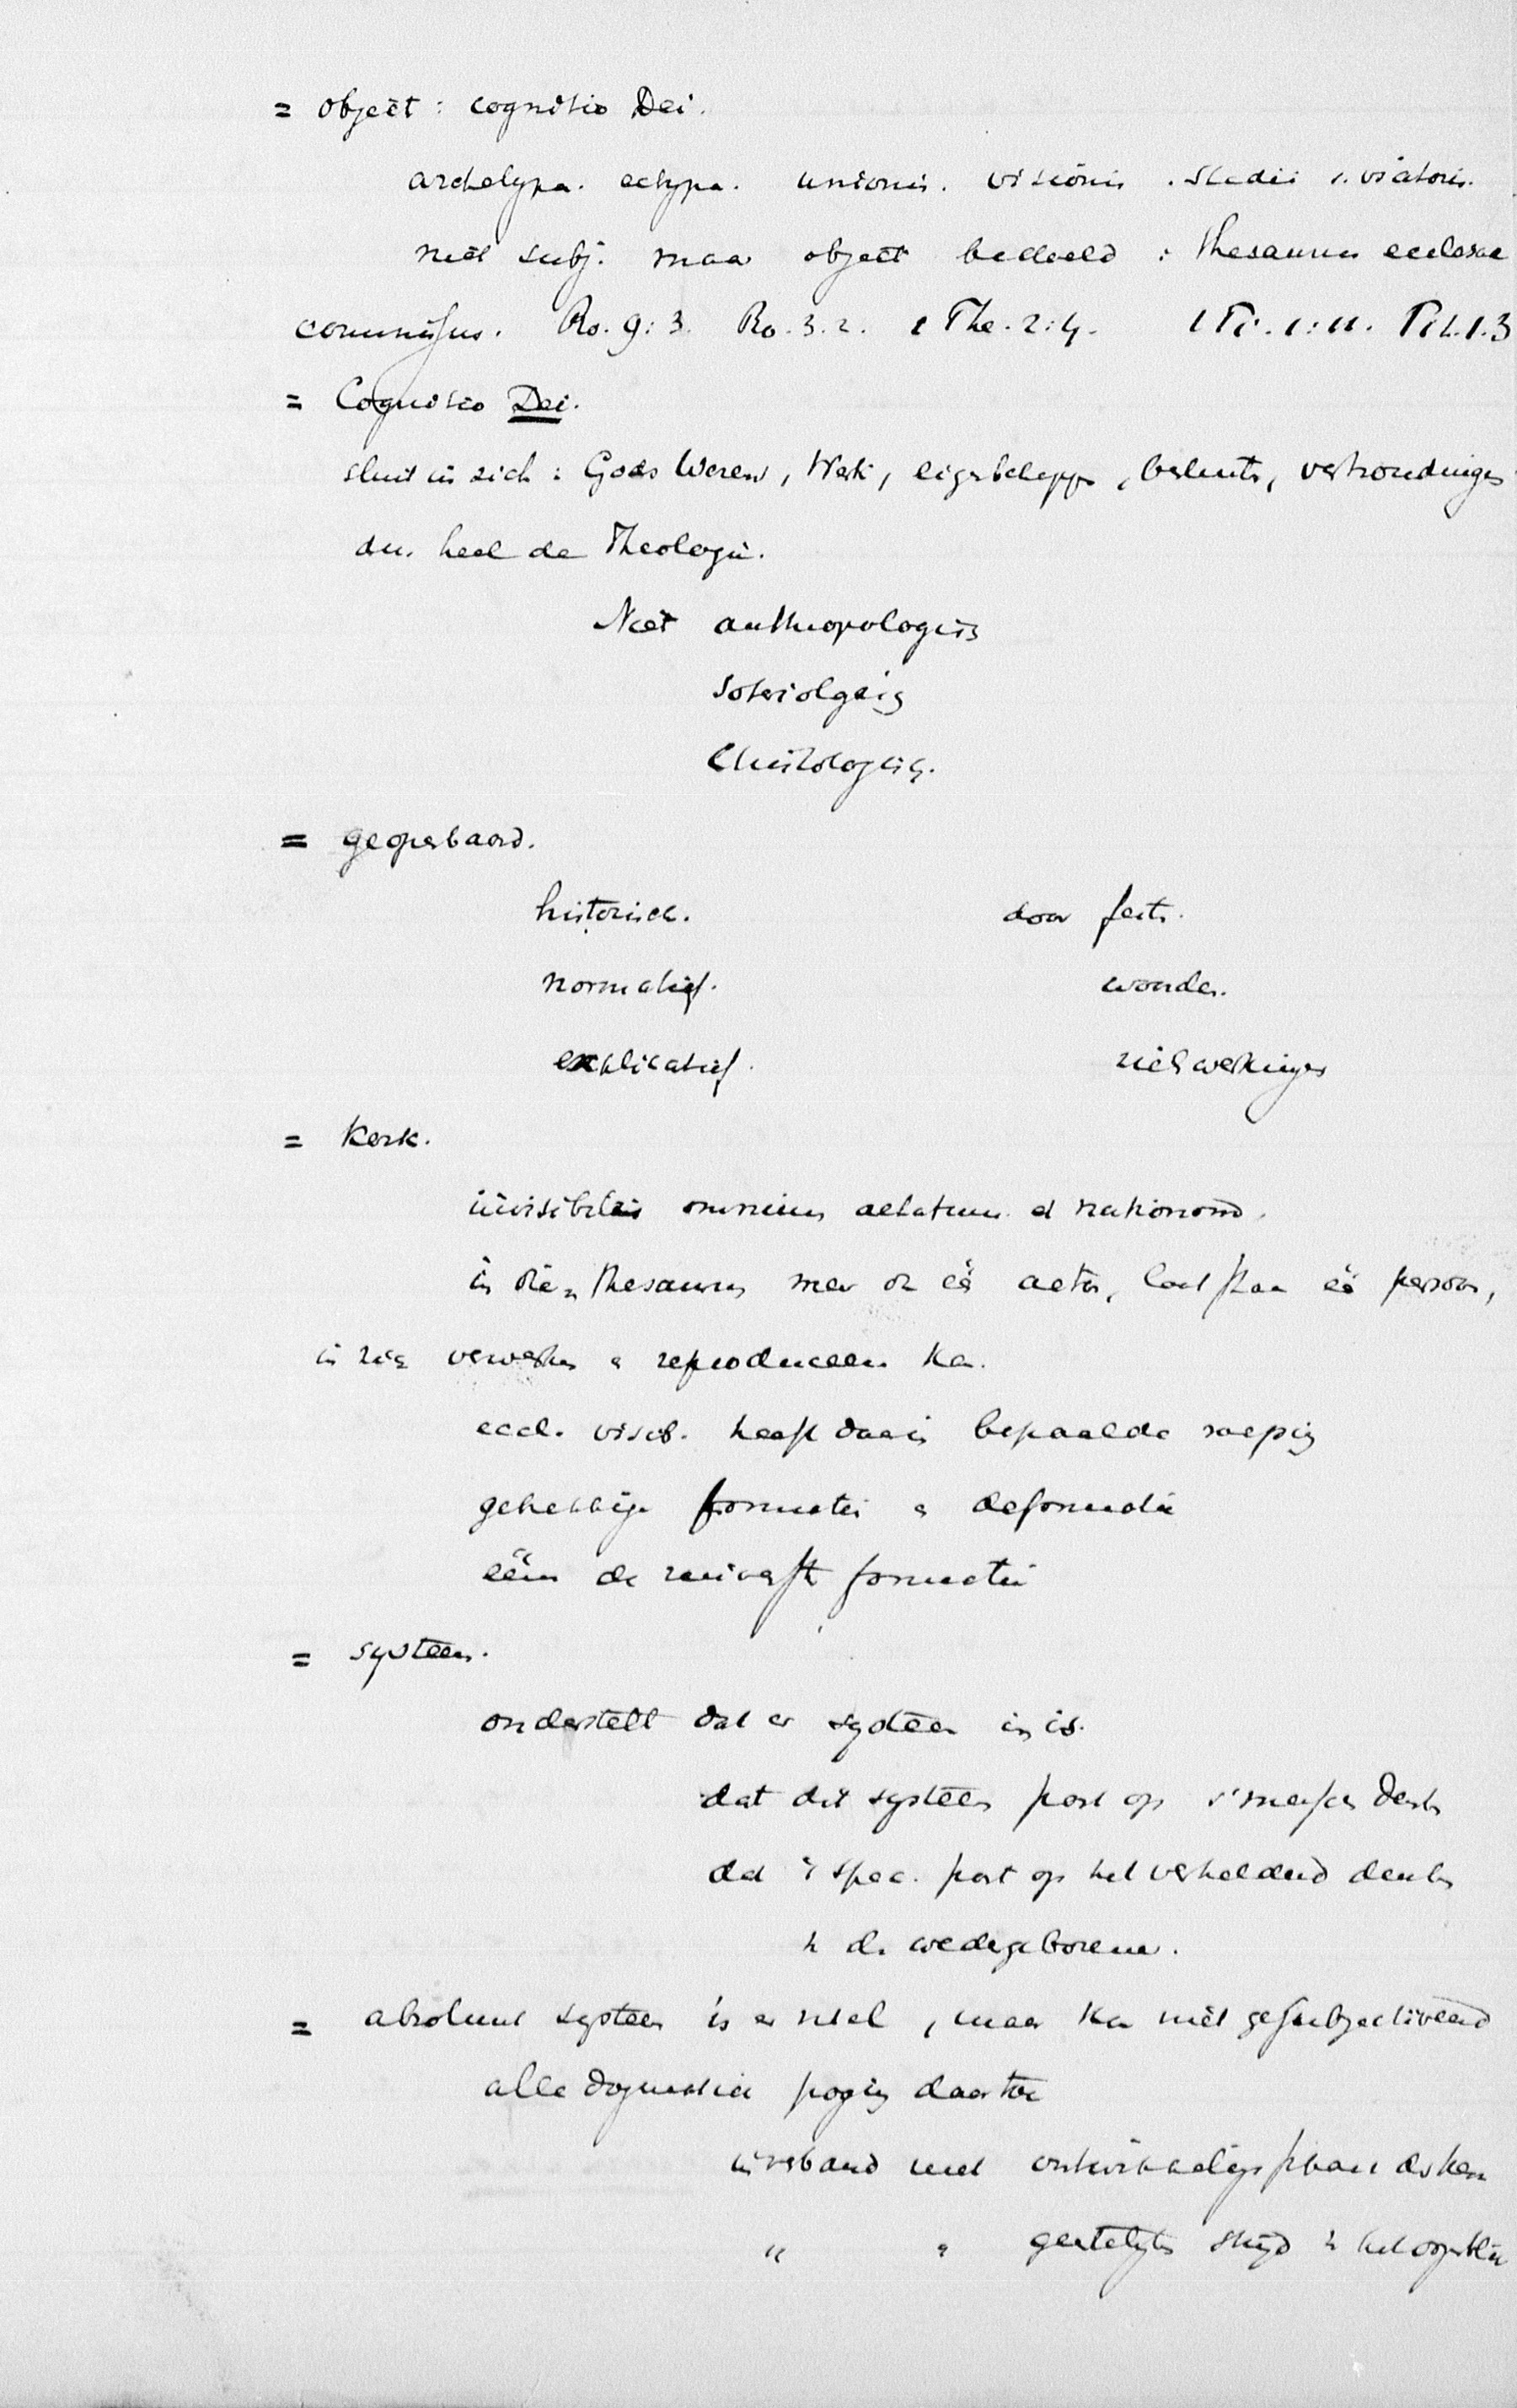 = object : cognitio Dei.
archetypa. ectypa. unionis. visionis. stadii s. viatoris.
niet subj. maar object bedoeld : thesaurus ecclesiae
commissus. Ro. 9:3. Ro. 3.2. 1 The. 2:4. 1 Ti. 1:11. Tit. 1.3
= Cognitio Dei.
sluit in zich : Gods Wezen, Werk, eigenschappen, besluiten, verhoudingen
dus heel de Theologie.
Niet anthropologisch
Soteriologisch
Christologisch.
= geopenbaard.
historisch. door feiten.
normatief. wonder.
explicatief. zielswerkingen
= Kerk.
invisibilis omnium aetatum et nationum.
in die thesaurus niet in één aetas, laat staan één persoon,
in zich verwerken & reproduceeren kan.
eccl. visib. heeft daarin bepaalde roeping
gebrekkige formatie & deformatie
één de zuiverste formatie
= systeem.
onderstelt dat er systeem in is.
dat dit systeem past op 's menschen denken
dat in spec. past op het verhelderd denken
v. d. wedergeborene.
= absoluut systeem is er wel, maar kan niet gesubjectiveerd
alle dogmatiek poging daartoe
in verband met ontwikkelings phase der kerk
" " geestelijke strijd in het